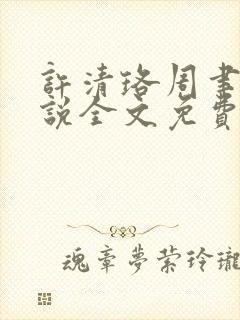 許清珞周聿
說全文免費
魂牽夢縈玲瓏